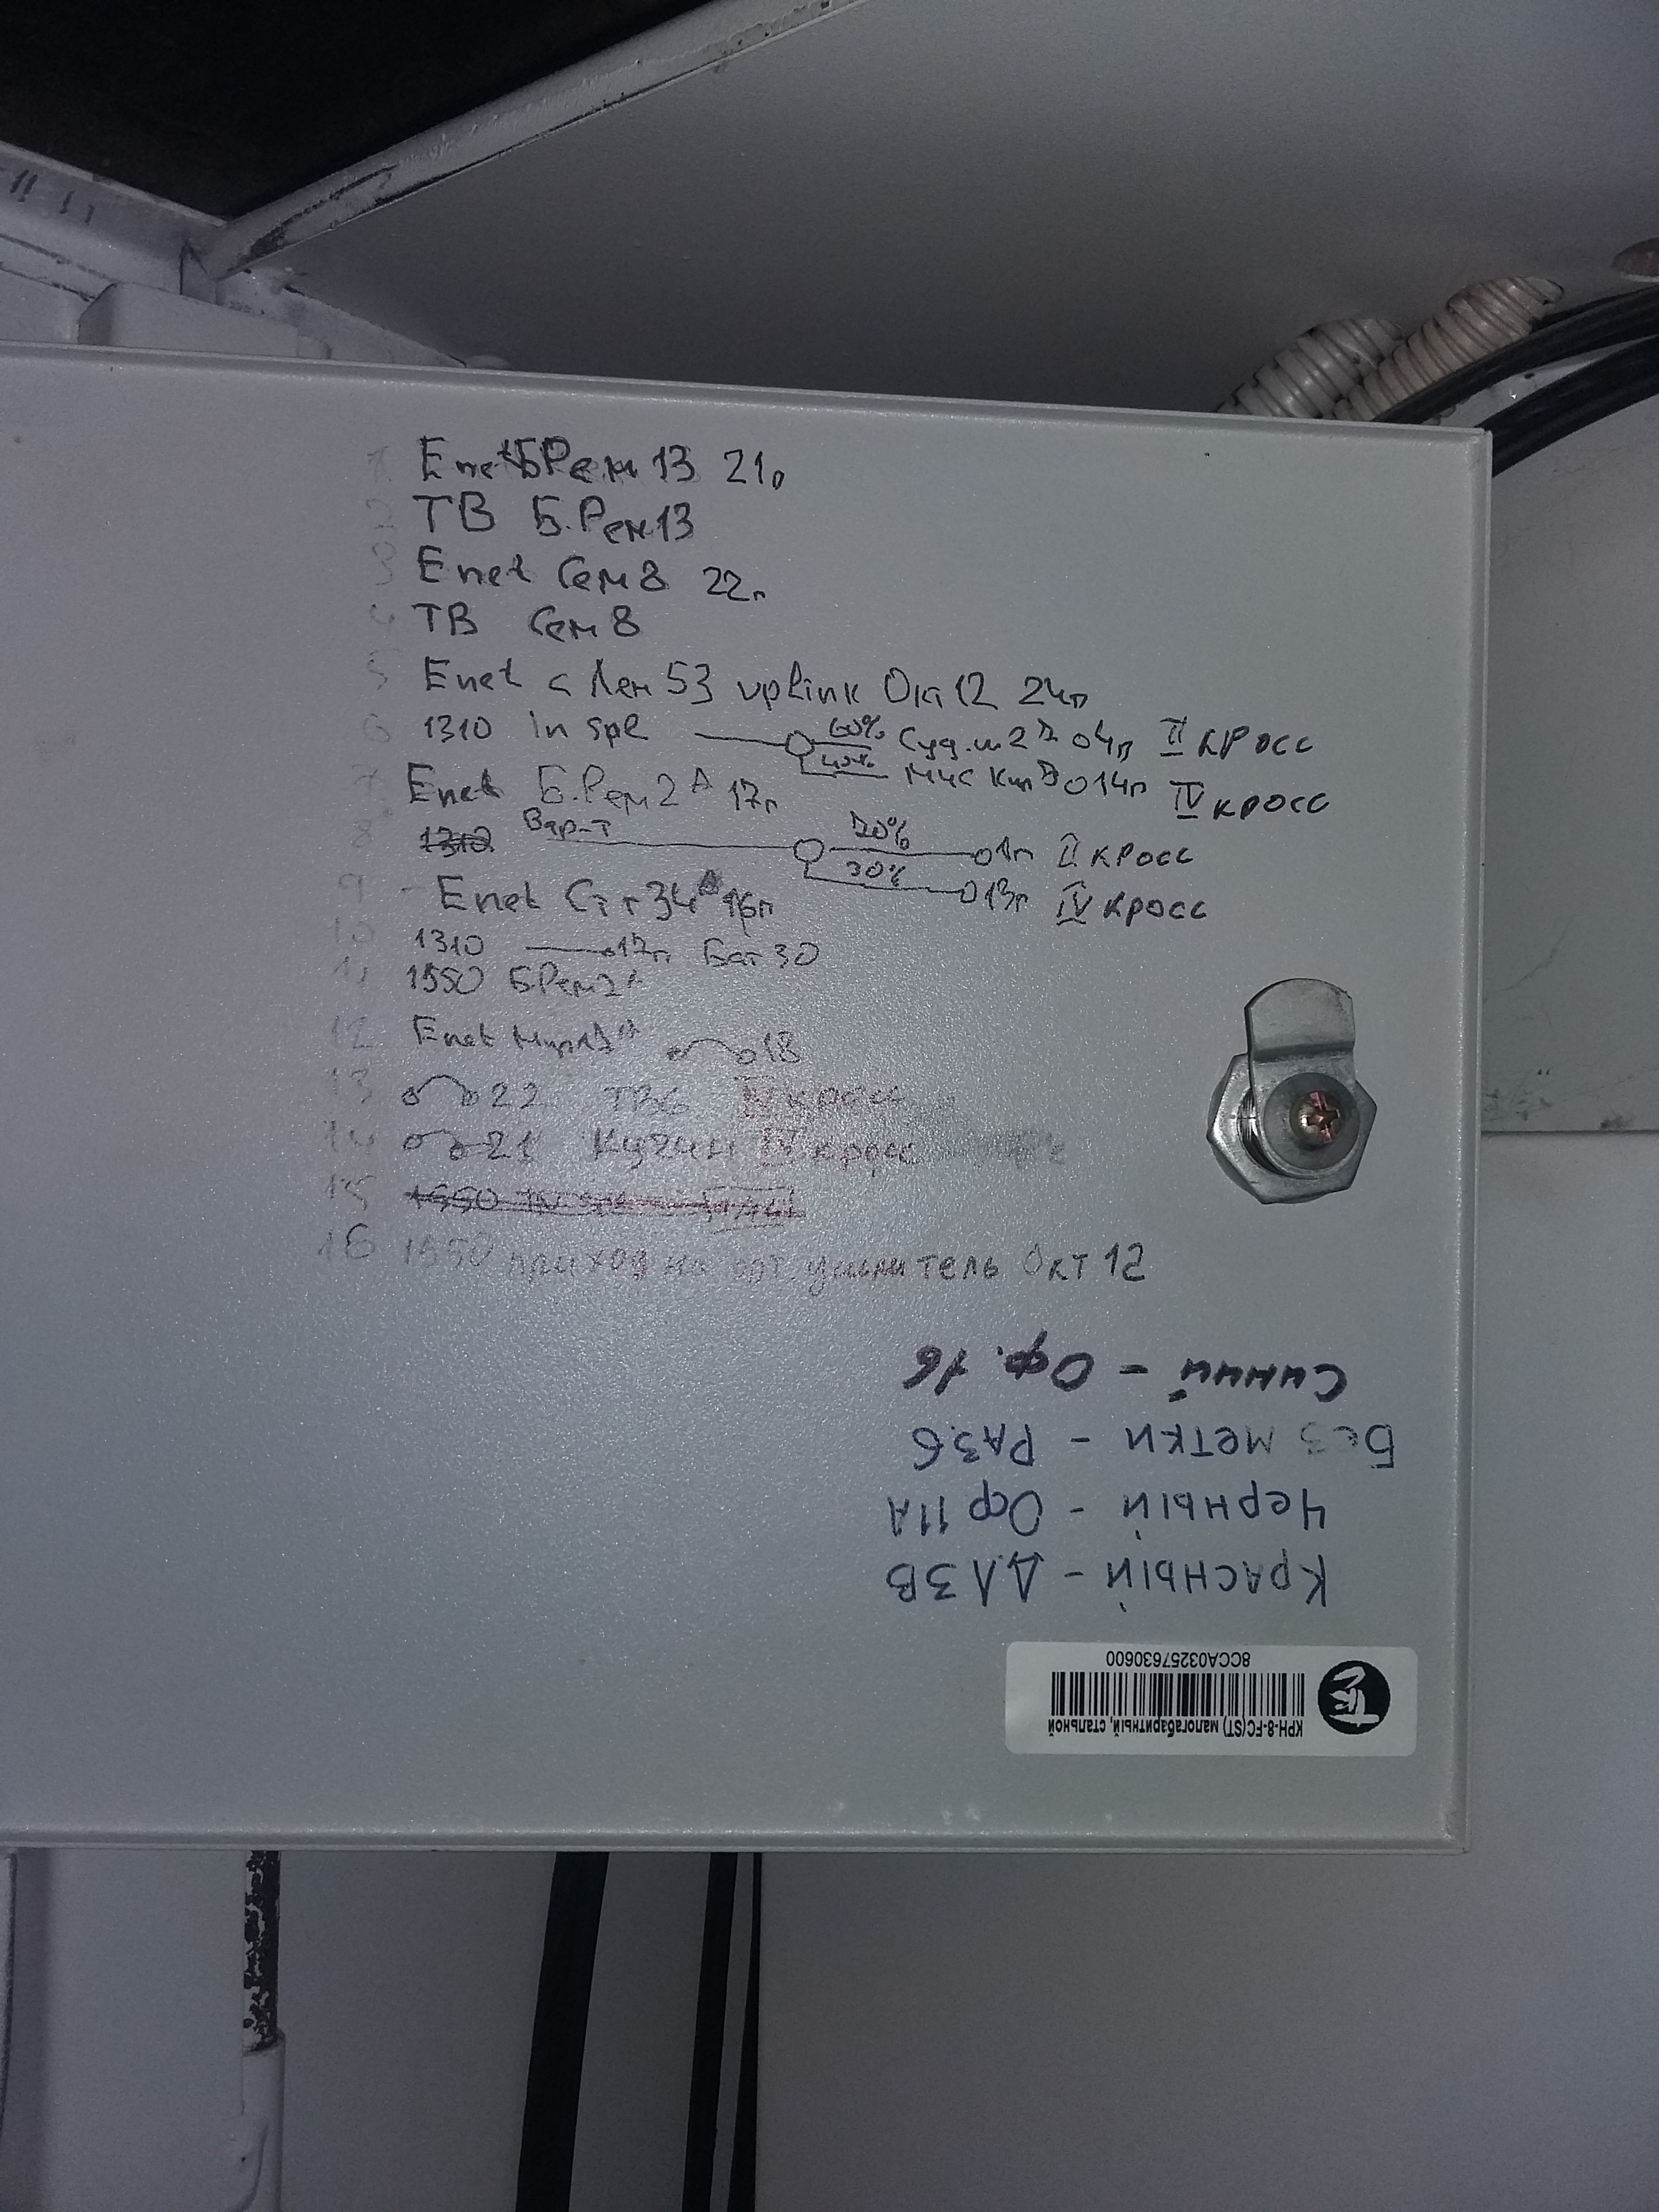 1 Enet Б.Рем 13 21п
2 ТВ Б.Рем 13
3 Enet Сем 8 22п
4 ТВ Сем 8
5 Enet с Лен 53 uplink Окт 12 24п
6 1310 in spl 60% 04п II кросс
40% МЧС 014п IV кросс
7 Enet Б.Рем 2А 17п
8 1310 70% 01п II кросс
30% 013п IV кросс
9 Enet 34А 16п
10 1310 17п Баг 30
11 1550 Б.Рем 2А
12 Enet 18
13 22 IV кросс
14 21 IV кросс
15 1550
16 1550 приход на опт. усилитель Окт 12
Синий - Оф. 16
Без метки - Раз.6
Черный - Оф 11А
Красный - ДЛ 3В
КРН-8-FC(ST) малогабаритный, стальной
8CCA03257630600